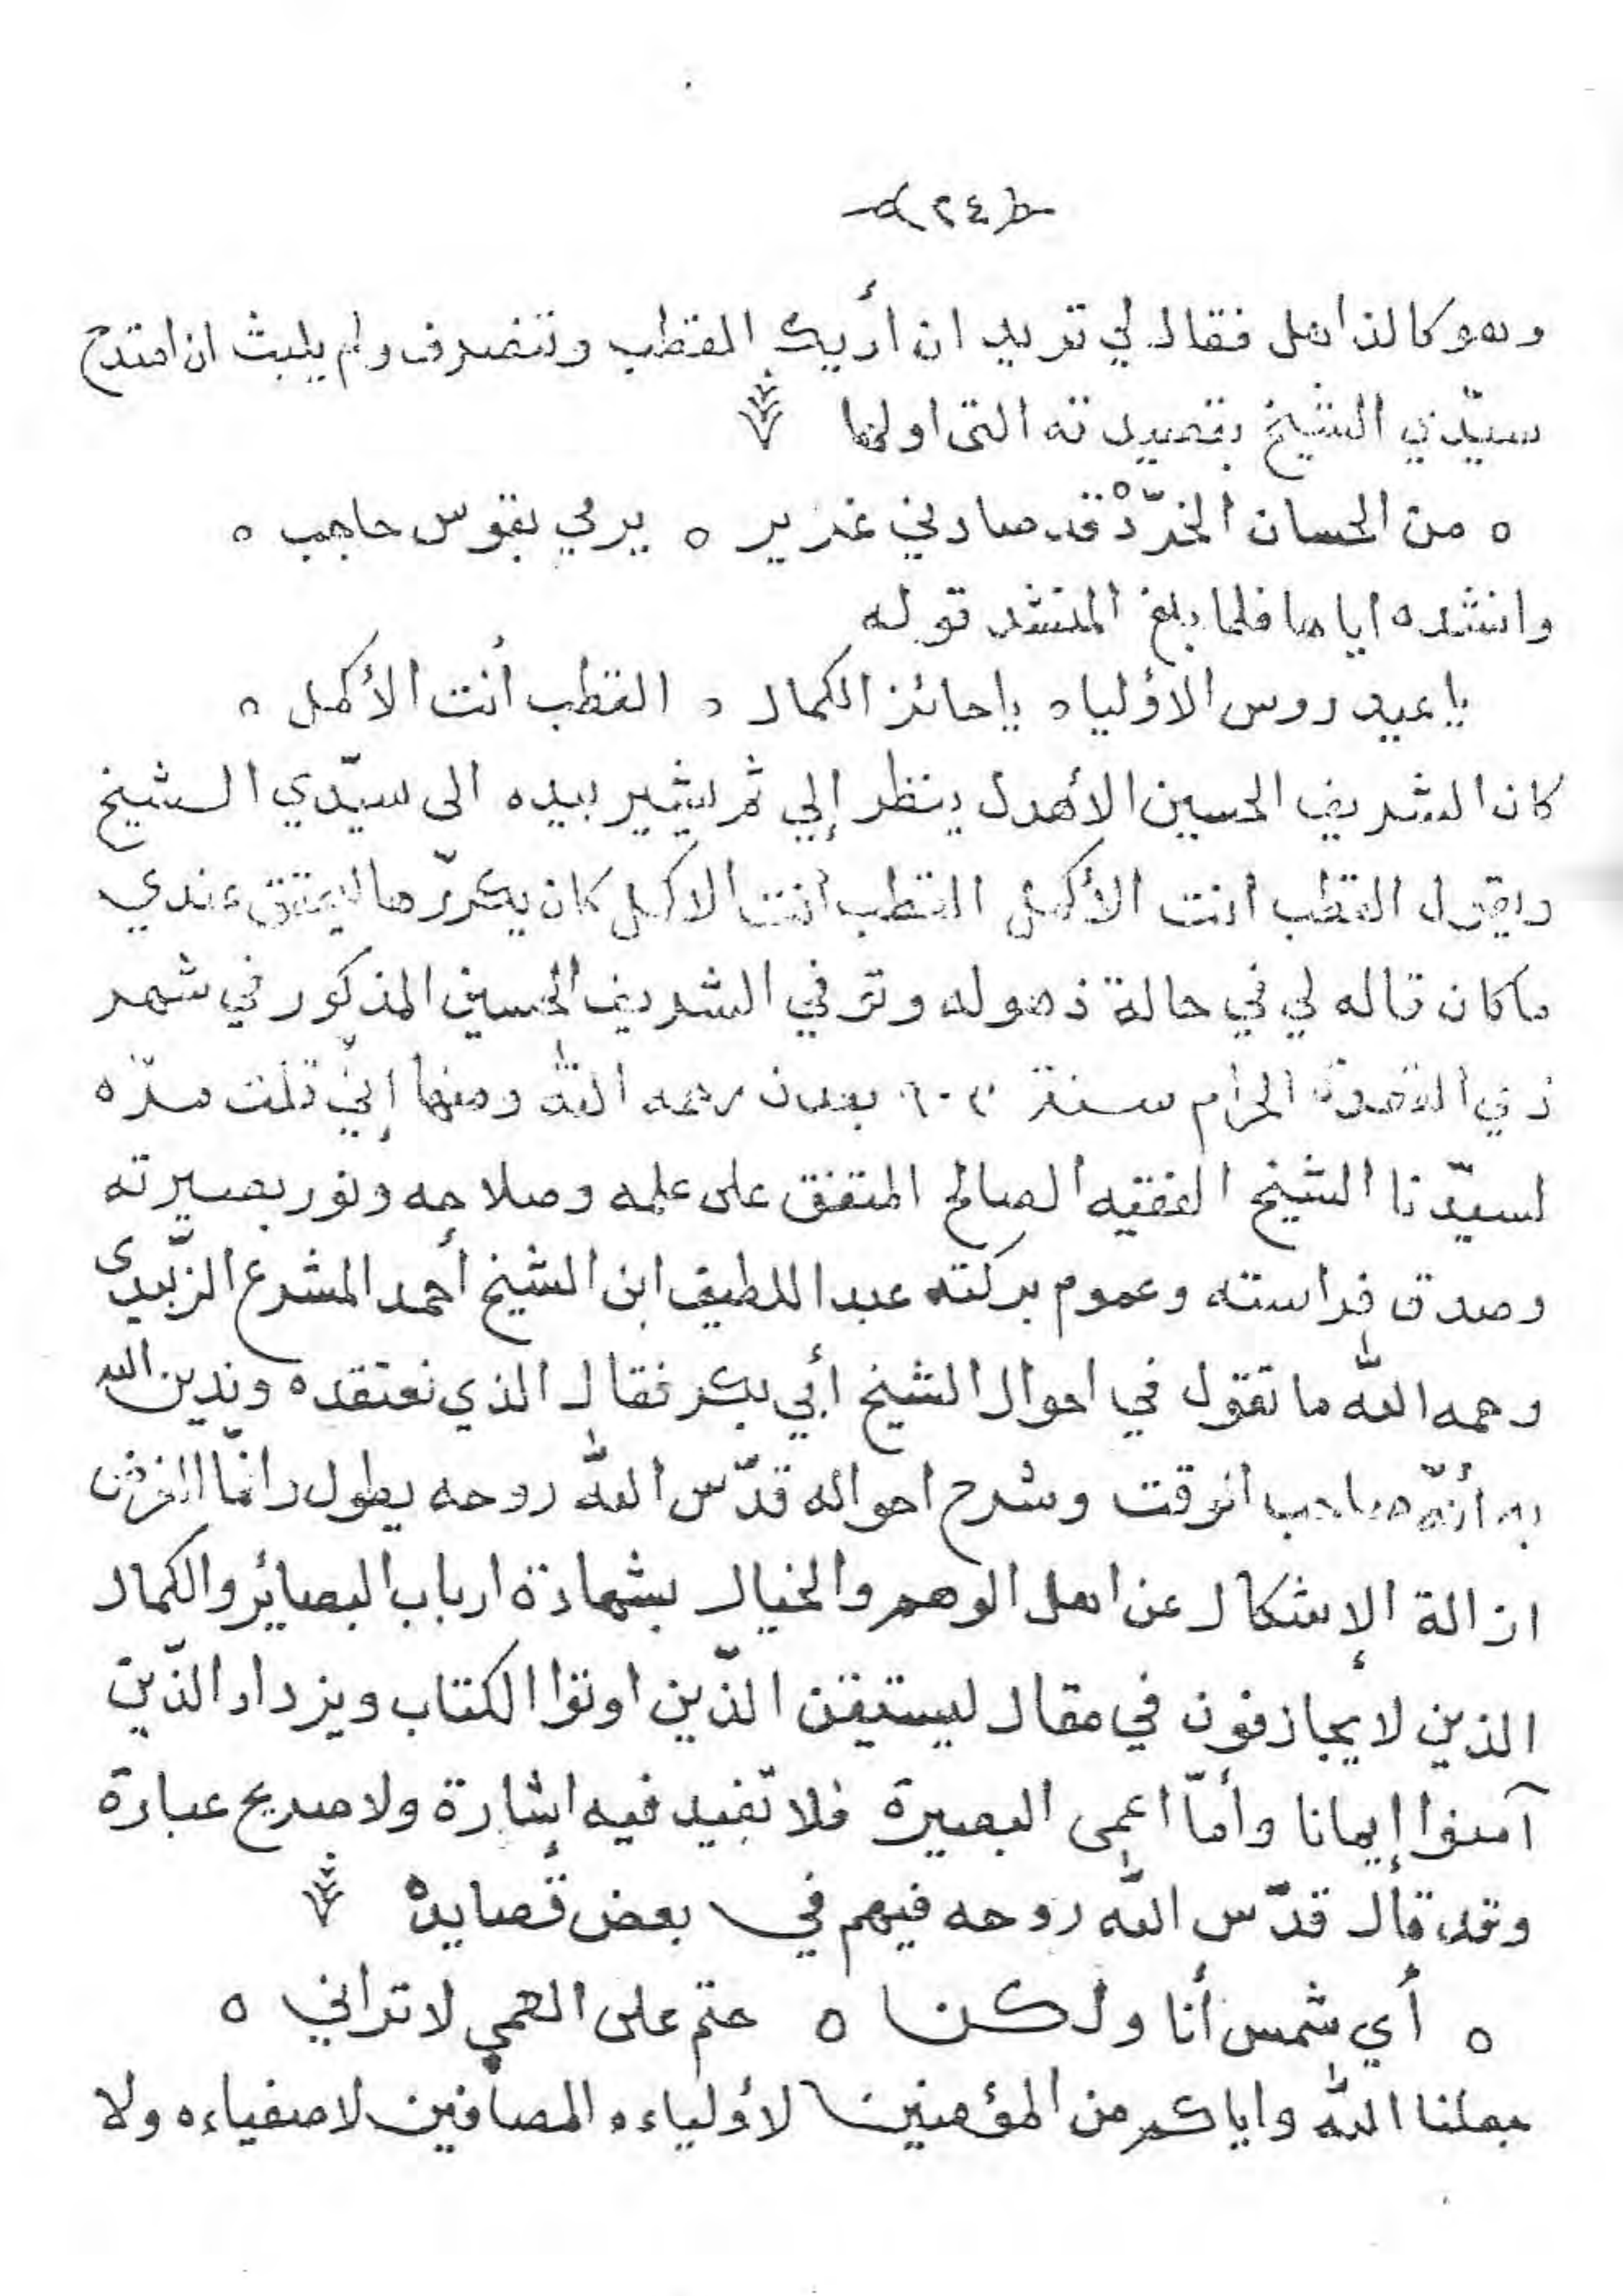 (٢٤)
وهو كالذاهل فقال لي تريد ان أريك القطب وتنصرف ولم يلبث ان امتدح
سيّدي الشيخ بقصيدته التى اولها
ه من الحسان الخرّدْ قد صادني غرير ه يرمي بقوس حاجب ه
وانشده اياها فلما بلغ المنشد قوله
يا عيدروس الاؤلياء ياحائز الكمال ه القطب أنت الأكمل ه
كان الشريف الحسين الأهدل ينظر إلي ثم يشير بيده الى سيّدي الشيخ
ويقول القطب انت الأكمل القطب أنت الاكمل كان يكررّها ليحقق عندي
ماكان قاله لي في حالة ذهوله وتوفي الشريف الحسين المذكور في شهر
ذي القعدة الحرام سنة بعدن رحمه الله ومنها إنّي قلت مرّه
لسيّدنا الشيخ الفقيه الصالح المتفق على علمه وصلاحه ونور بصيرته
وصدق فراسته وعموم بركته عبد اللطيف ابن الشيخ أحمد المشرع الزّبيدى
رحمه الله ما تقول في احوال الشيخ أبي بكر فقال الذي نعتقده وندين الله
به أنّه صاحب الوقت وشرح احواله قدّس الله روحه يطول وانّما الغرض
ازالة الإشكال عن اهل الوهم والخيال بشهادة ارباب البصائر والكمال
الذين لا يجازفون في مقال ليستيقن الذّين اوتوا الكتاب ويزداد الذّين
آمنوا إيمانا وأمّا اعمى البصيرة فلا تفيد فيه إشارة ولا صريح عبارة
وقد قال قدّس الله روحه فيهم في بعض قصايدهْ
ه أي شمس أنا ولكن ه حتم على العمي لا تراني ه
جعلنا الله واياكم من المؤمنين لاؤلياءه المصافين لاصفياءه ولا